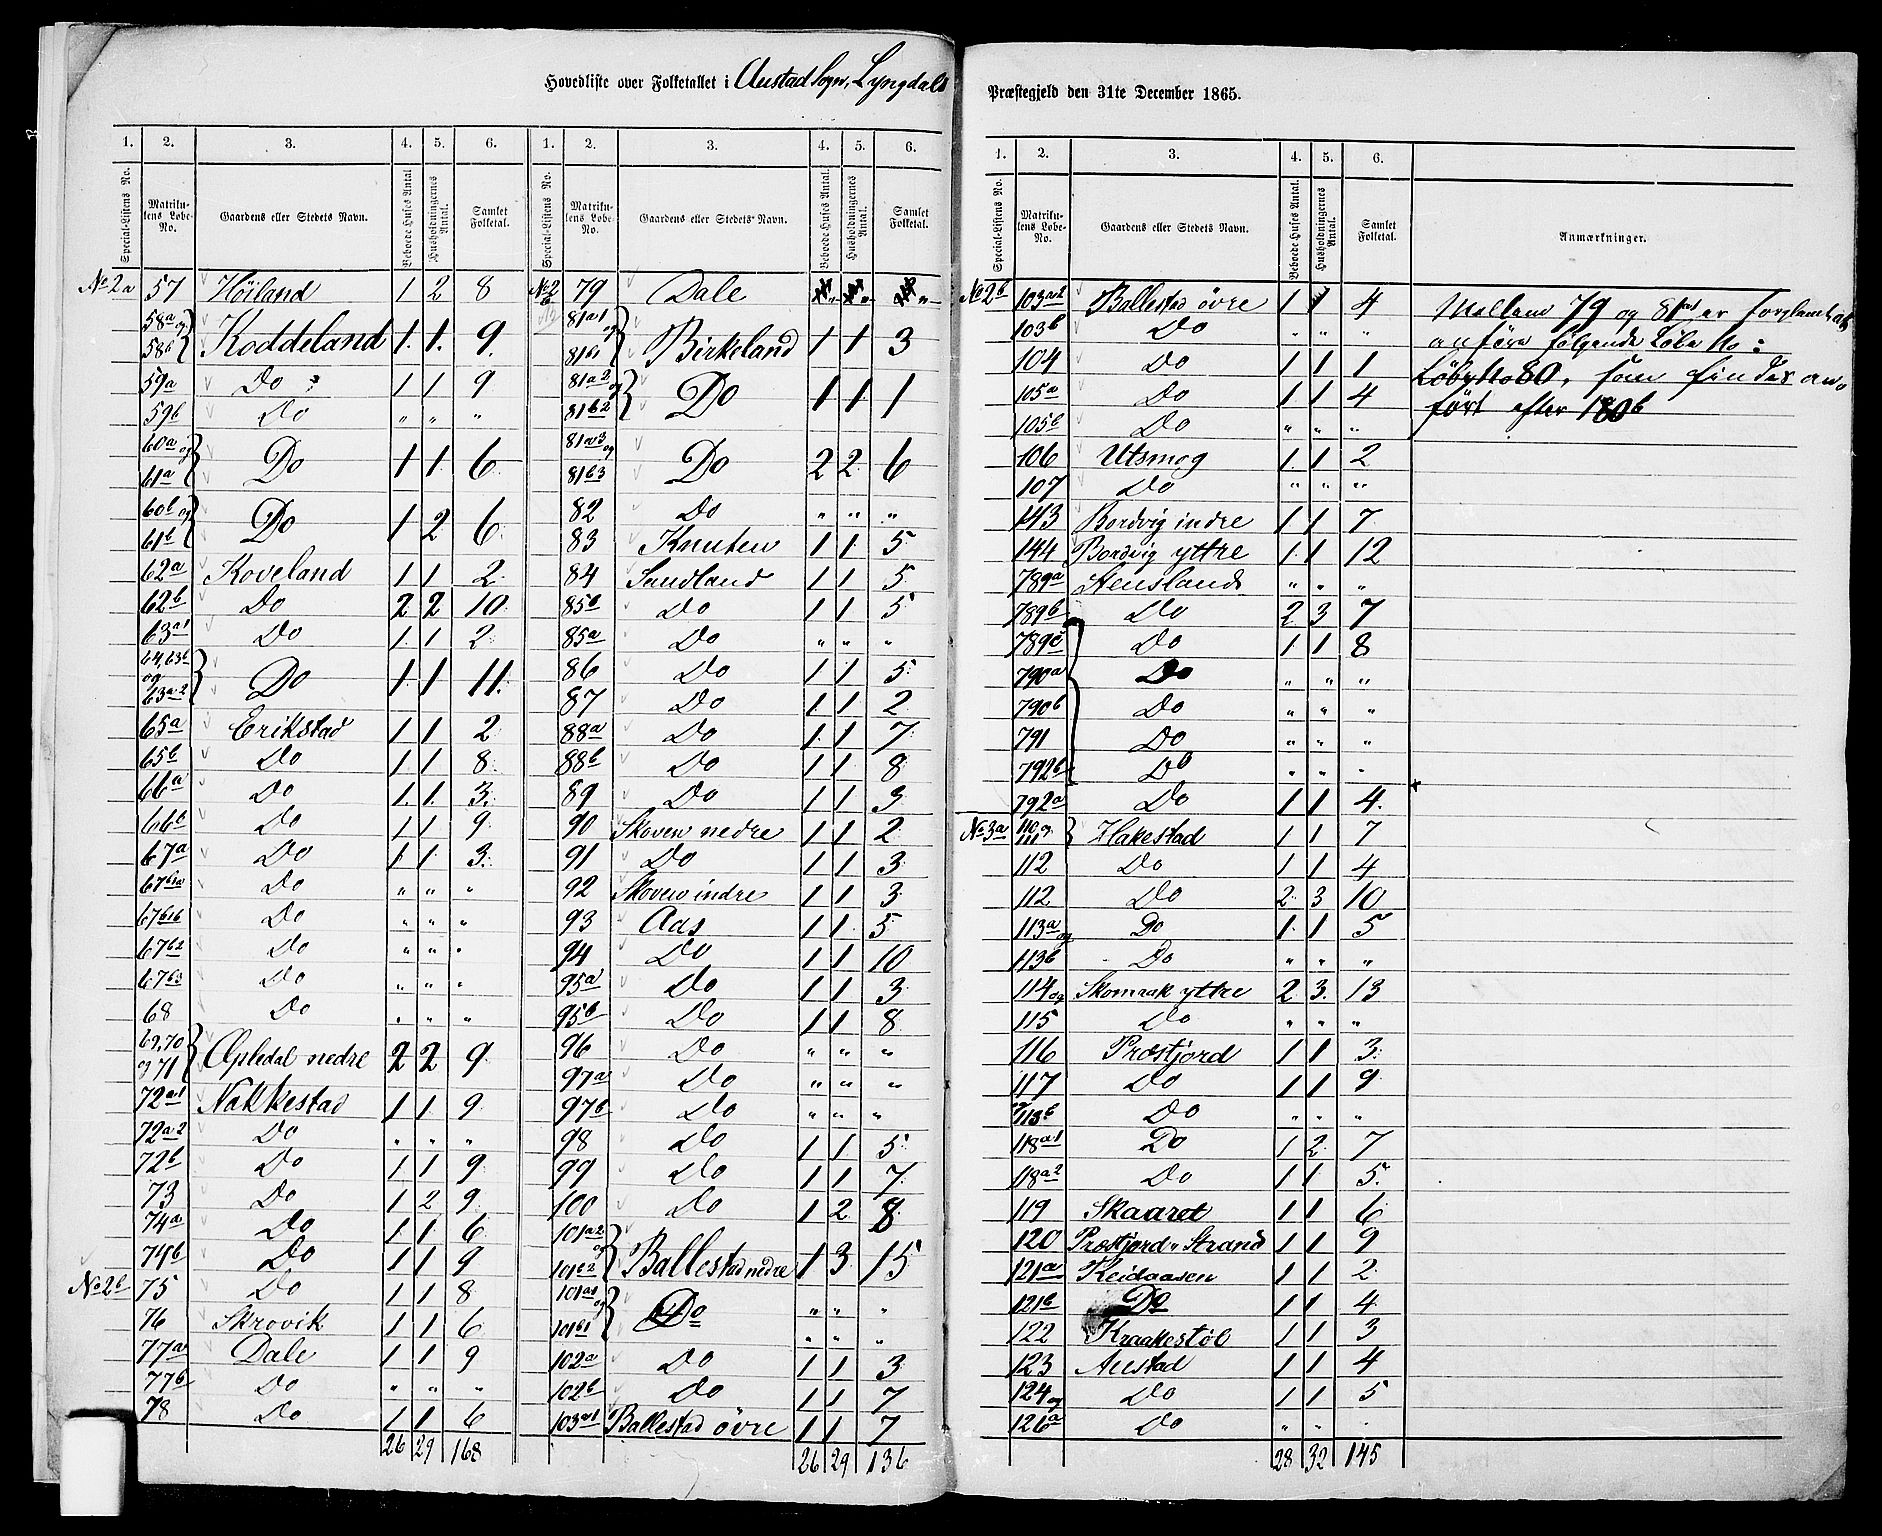 Hovedliste over Folketallet i Austad Sogn, Lyngdals
1. 2. 3. 4. 5. 6. 1. 2. 3. 4. 5. 6.
Special-Listens No. Matrikulens Løbe-No. Gaardens eller Stedets Navn. Beboede Huses Antal Husholdningernes Antal. Samlet Folketal. Special-Listens No. Matrikulens Løbe-No. Gaardens eller Stedets Navn. Beboede Huses Antal. Husholdningernes Antal. Samlet Folketal.
No 2a 57 Höiland 1 2 8
58a og 58b Koddeland 1 1 9
59a Do 1 1 9
59b Do " " "
60a og 61a Do 1 1 6
60b og 61b Do 1 2 6
62a Koveland 1 1 2
62b Do 2 2 10
63a1 Do 1 1 2
64, 63b og 63a2 Do 1 1 11
65a Erikstad 1 1 2
65b Do 1 1 8
66a Do 1 1 3
66b Do 1 1 9
67a Do 1 1 3
67b1a Do " " "
67b1b Do " " "
67b2 Do " " "
67b3 Do " " "
68 Do " " "
69, 70 og 71 Opledal nedre 2 2 9
72a1 Nakkestad 1 1 9
72a2 Do " " "
72b Do 1 1 9
73 Do 1 2 9
74a Do 1 1 6
74b Do 1 1 9
No 2b 75 Do 1 1 8
76 Skrovik 1 1 6
77a Dale 1 1 9
77b Do " " "
78 Do 1 1 6
26 29 168
No 2b 79 Dale " " "
81a1 og 81b1 Birkeland 1 1 3
81a2 og 81b2 Do 1 1 1
81a3 og 81b3 Do 2 2 6
82 Do " " "
83 Knuten 1 1 5
84 Sandland 1 1 5
85b Do 1 1 5
85a Do " " "
86 Do 1 1 5
87 Do 1 1 2
88a Do 1 1 7
88b Do 1 1 8
89 Do 1 1 3
90 Skoven nedre 1 1 2
91 Do 1 1 3
92 Skoven indre 1 1 3
93 Aas 1 1 5
94 Do 1 1 10
95a Do 1 1 3
95b Do 1 1 8
96 Do " " "
97a Do " " "
97b Do " " "
98 Do 1 1 5
99 Do 1 1 7
100 Do 1 2 8
101a2 og 101b2 Ballestad nedre 1 3 15
101a1 og 101b1 Do " " "
" " "
102a Do 1 1 3
102b Do 1 1 7
103a1 Ballestad övre 1 1 7
26 29 136
Præstegjeld den 31te December 1865.
1. 2. 3. 4. 5. 6.
Special-Listens No. Matrikulens Løbe-No. Gaardens eller Stedets Navn. Beboede Huses Antal. Husholdningernes Antal. Samlet Folketal. Anmærkninger.
No 2b 103a2 Ballestad övre 1 1 4
103b Do " " "
104 Do 1 1 1
105a Do 1 1 4
105b Do " " "
106 Utsmog 1 1 2
107 Do " " "
143 Bordvig indre 1 1 7
144 Bordvig yttre 1 1 12
789a Stensland " " "
789b Do 2 3 7
789c Do 1 1 8
790a Do " " "
790b Do " " "
791 Do " " "
792b Do " " "
792a Do 1 1 4
No 3a 110 og 111 Hakestad 1 1 7
112 Do 1 1 4
112 Do 2 3 10
113a og Do 1 1 5
113b Do " " "
114 og Skomrak yttre 2 3 13
115 Do " " "
116 Præstjord 1 1 3
117 Do 1 1 9
Do " " "
118a1 Do 1 2 7
118a2 Do 1 1 5
119 Skaaret 1 1 6
120 Præstjord" Strand 1 1 9
121a Reidaasen 1 1 2
121b Do 1 1 4
122 Kraakestöl 1 1 3
123 Austad 1 1 4
124 og Do 1 1 5
126a Do " " "
28 32 145
Mellem 79 og 81 er forglemt at
anföre fölgende Löbe No:
Löbe No 80, som findes an-
fört efter 180b